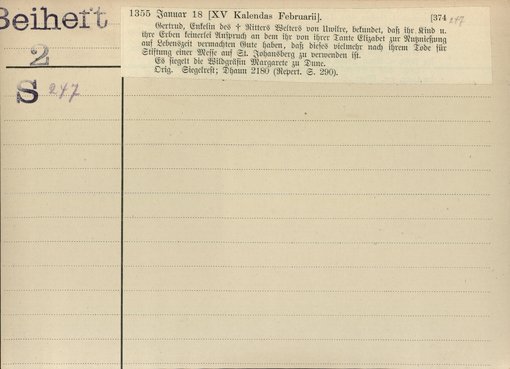 Beiheft
2
S 247
1355 Januar 18 [XV Kalendas Februarii]. [374 247
Gertrud, Enkelin des † Ritters Welters von Uwilre, bekundet, daß ihr Kind u.
ihre Erben keinerlei Anspruch an dem ihr von ihrer Tante Elizabet zur Nutznießung
auf Lebenszeit vermachten Gute haben, daß dieses vielmehr nach ihrem Tode für
Stiftung einer Messe auf St. Johansberg zu verwenden ist.
Es siegelt die Wildgräfin Margarete zu Dune.
Orig. Siegelrest; Dhaun 2180 (Repert. S. 290).